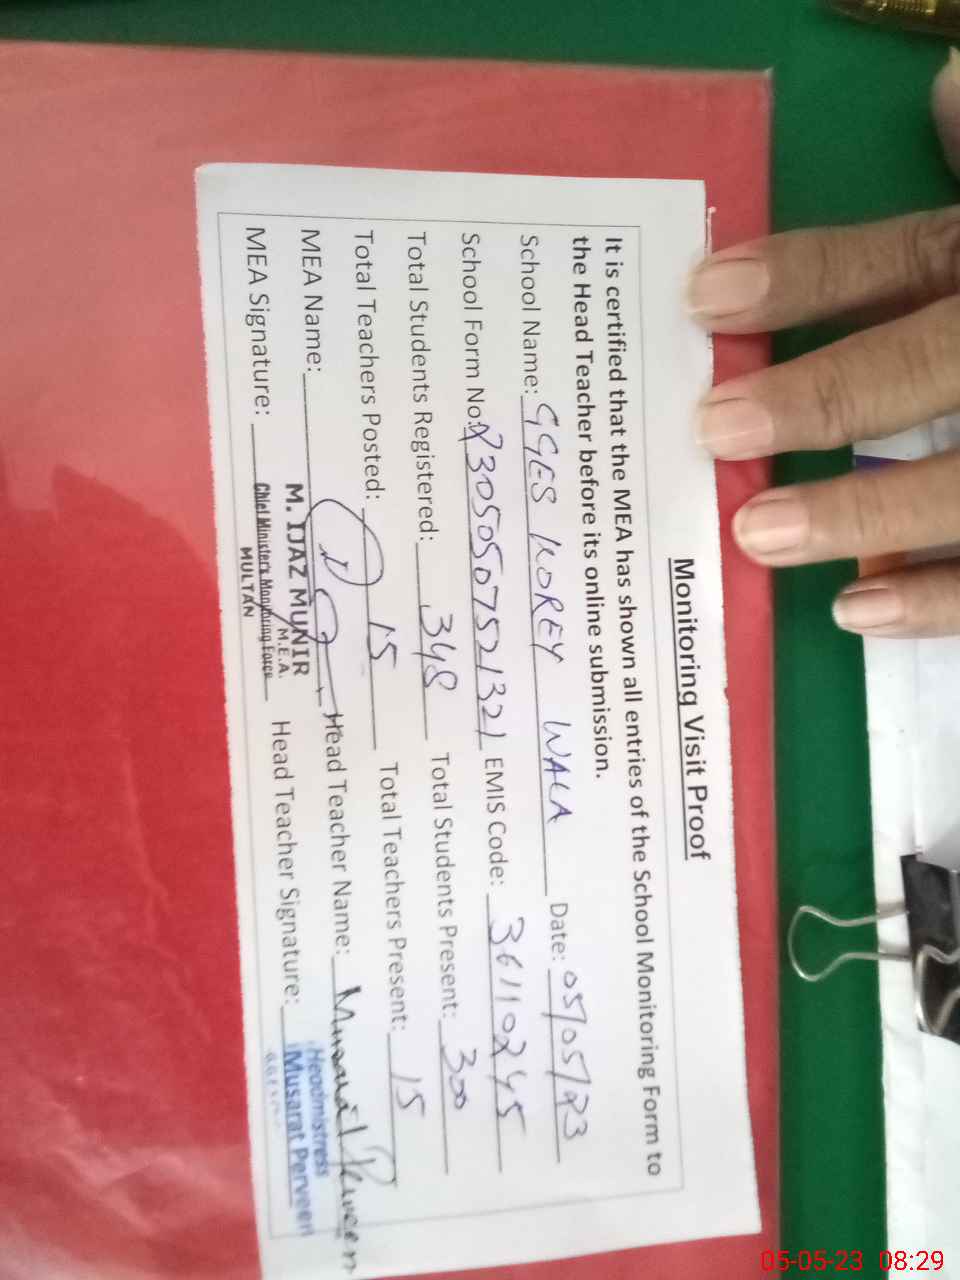 Monitoring Visit Proof
It is certified that the MEA has shown all entries of the School Monitoring Form to
the Head Teacher before its online submission.
School Name: GGES KOREY WALA Date: 05/05/23
School Form No: 23050507521321 EMIS Code: 36110245
Total Students Registered: 348 Total Students Present: 300
Total Teachers Posted: 15 Total Teachers Present: 15
MEA Name: Head Teacher Name: Musarat Perveen
M. IJAZ MUNIR
M.E.A.
MEA Signature: Head Teacher Signature:
Chief Minister's Monitoring Force
MULTAN
Headmistress
Musarat Perveen
05-05-23 08:29